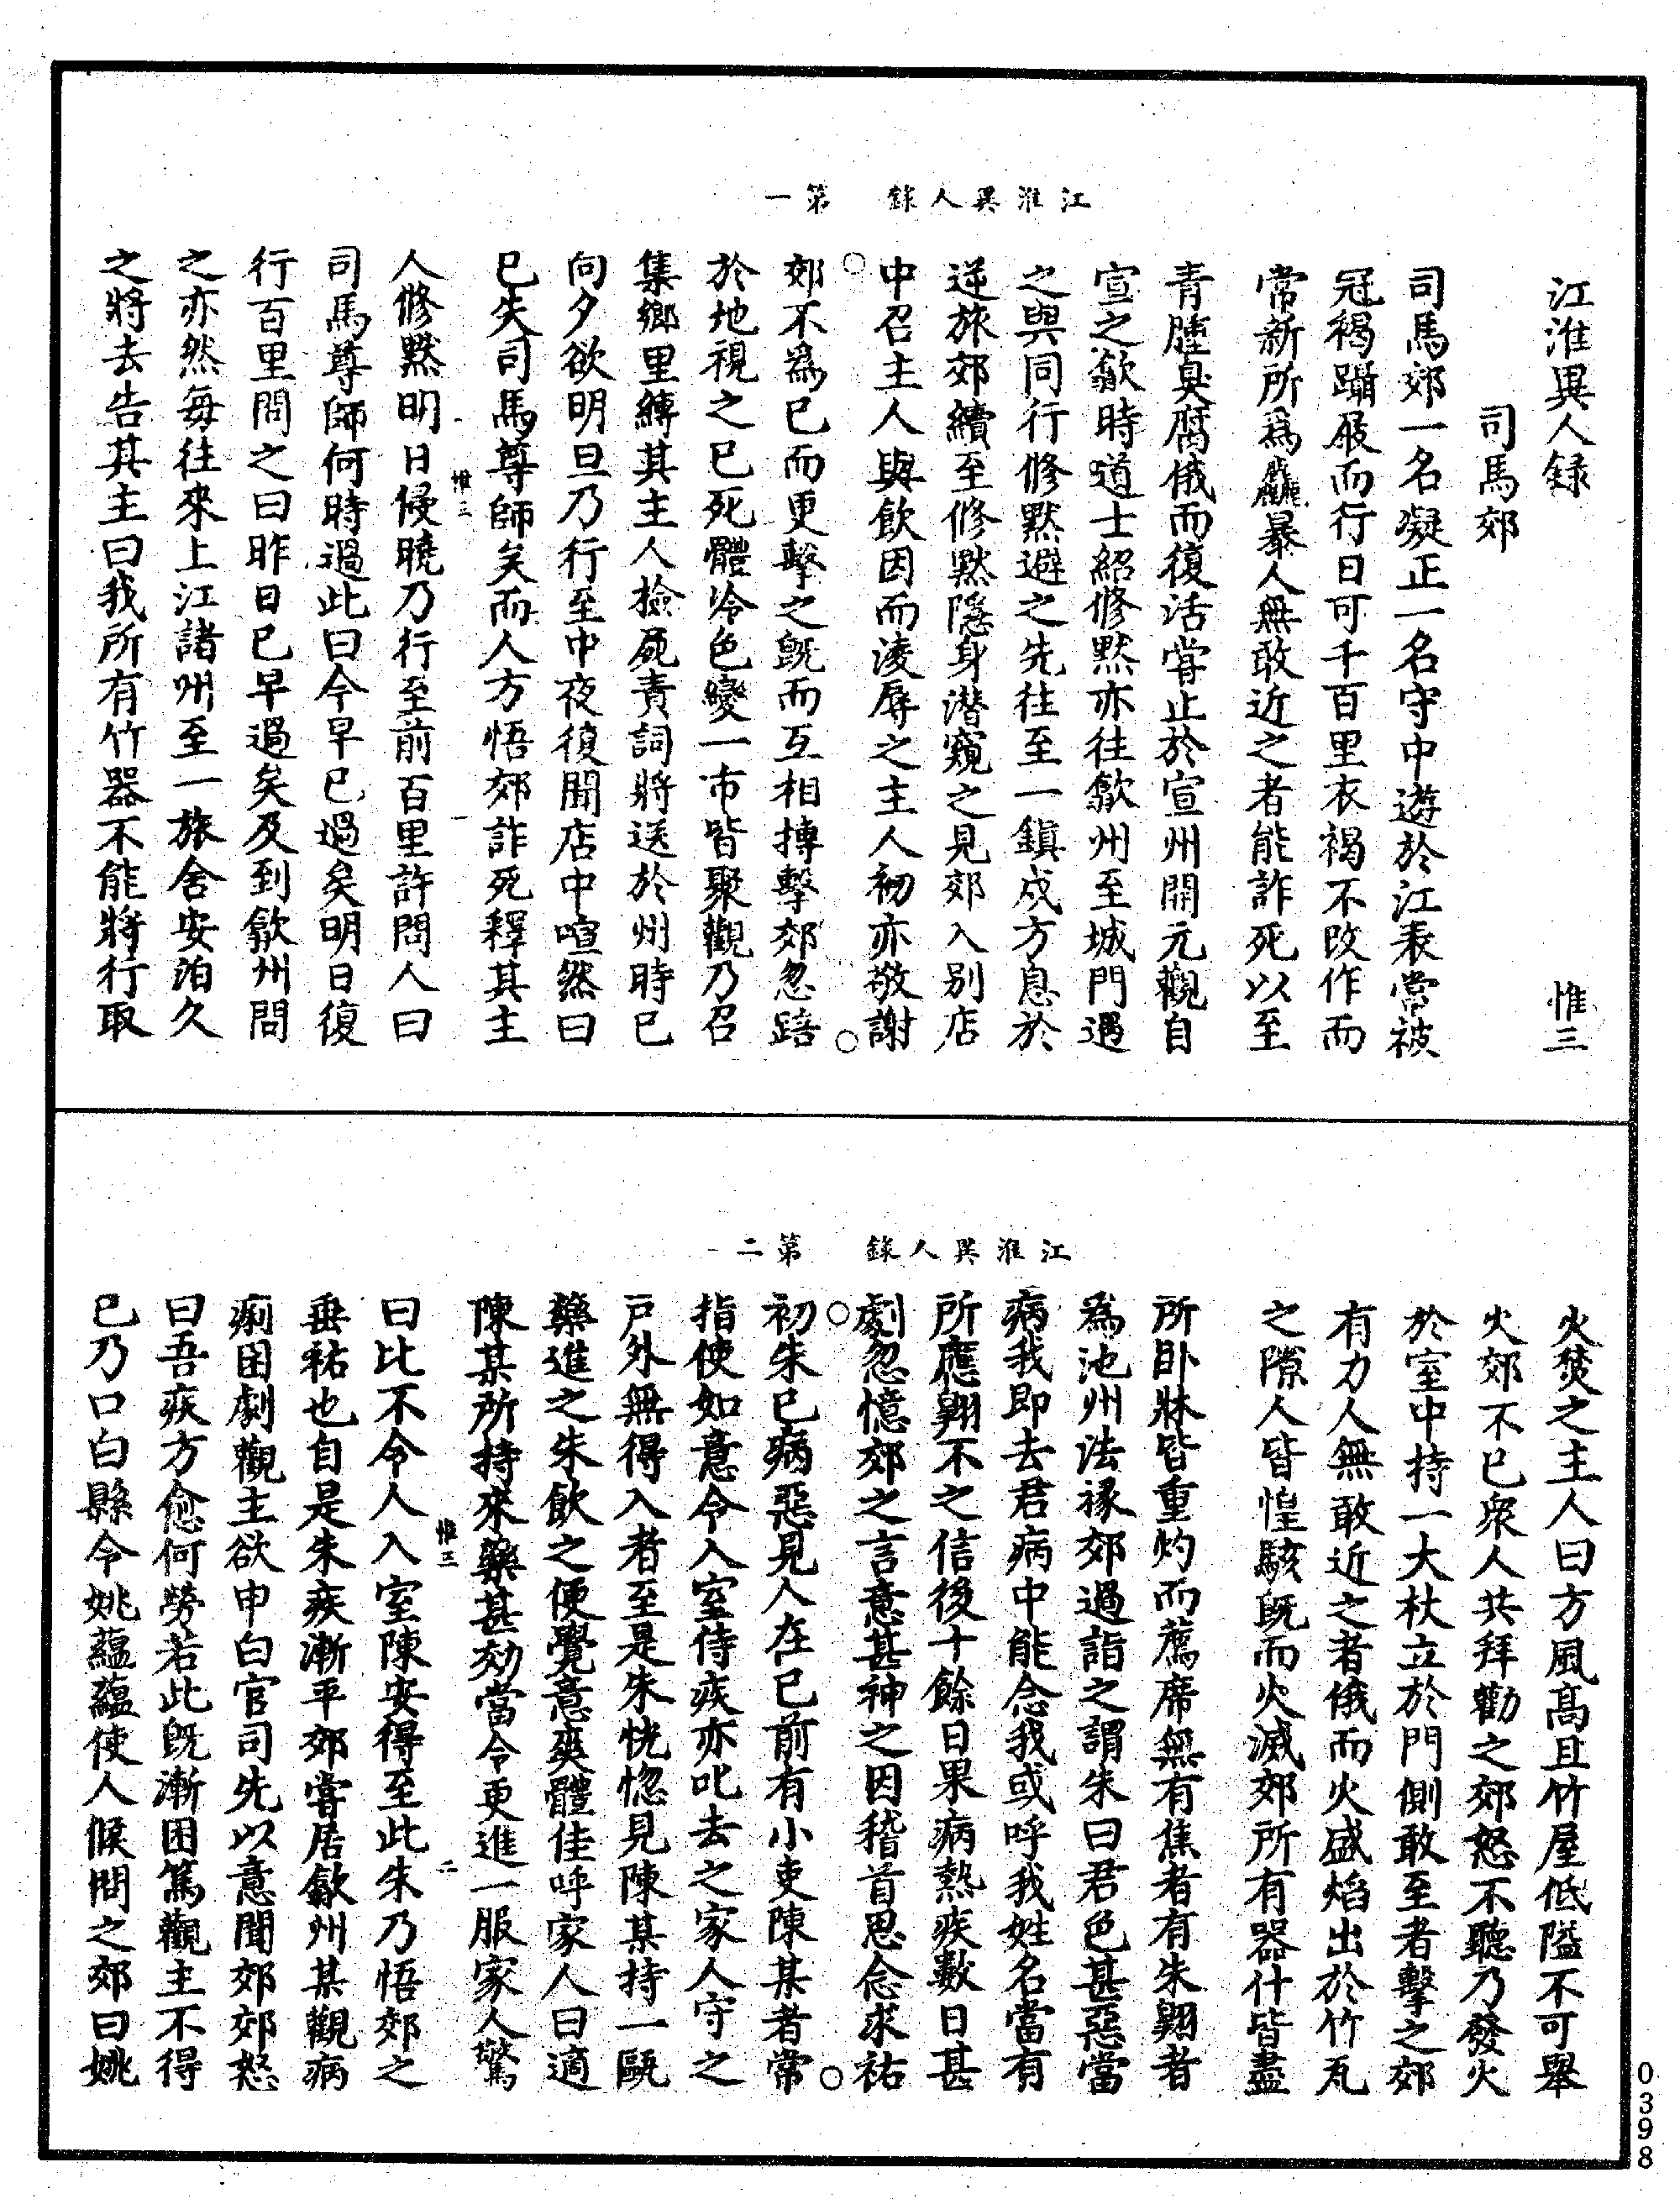 江淮異人錄　第一
江淮異人録　惟三
司馬郊
司馬郊一名凝正一名守中遊於江表常被
冠褐躡屐而行日可千百里衣褐不改作而
常新所爲麤暴人無敢近之者能詐死以至
青腫臭腐俄而復活嘗止於宣州開元觀自
宣之歙時道士紹修默亦往歙州至城門遇
之與同行修黙避之先往至一鎮戍方息於
逆旅郊續至修黙隱身潜窺之見郊入别店
中召主人與飲因而淩辱之主人初亦敬謝
郊不爲已而更擊之旣而互相摶擊郊忽踣
於地視之已死體冷色變一市皆聚觀乃召
集鄉里縛其主人撿屍責詞將送於州時已
向夕欲明旦乃行至中夜復聞店中喧然曰
已失司馬尊師矣而人方悟郊詐死釋其主
惟三　一
人修黙明日侵曉乃行至前百里許問人曰
司馬尊師何時過此曰今早已過矣明日復
行百里問之曰昨日已早過矣及到歙州問
之亦然每往來上江諸州至一旅舍安泊久
之將去告其主曰我所有竹器不能將行取
江淮異人錄　第二
火焚之主人曰方風髙且竹屋低隘不可舉
火郊不已衆人共拜勸之郊怒不聽乃發火
於室中持一大杖立於門側敢至者擊之郊
有力人無敢近之者俄而火盛焰出於竹瓦
之隙人皆惶駭旣而火滅郊所有器什皆盡
所卧牀皆重灼而薦席無有焦者有朱翺者
爲池州法掾郊過詣之謂朱曰君色甚惡當
病我即去君病中能念我或呼我姓名當有
所應翺不之信後十餘日果病熱疾數日甚
劇忽憶郊之言意甚神之因稽首思念求祐
初朱已病惡見人在已前有小吏陳某者常
指使如意令入室侍疾亦叱去之家人守之
戸外無得入者至是朱恍惚見陳某持一甌
藥進之朱飲之便覺意爽體佳呼家人曰適
陳某所持來藥甚効當令更進一服家人驚
惟三　二
曰比不令人入室陳安得至此朱乃悟郊之
垂祐也自是朱疾漸平郊嘗居歙州某觀病
痢困劇觀主欲申白官司先以意聞郊郊怒
曰吾疾方愈何勞若此旣漸困篤觀主不得
已乃口白縣令姚藴藴使人候問之郊曰姚
0398